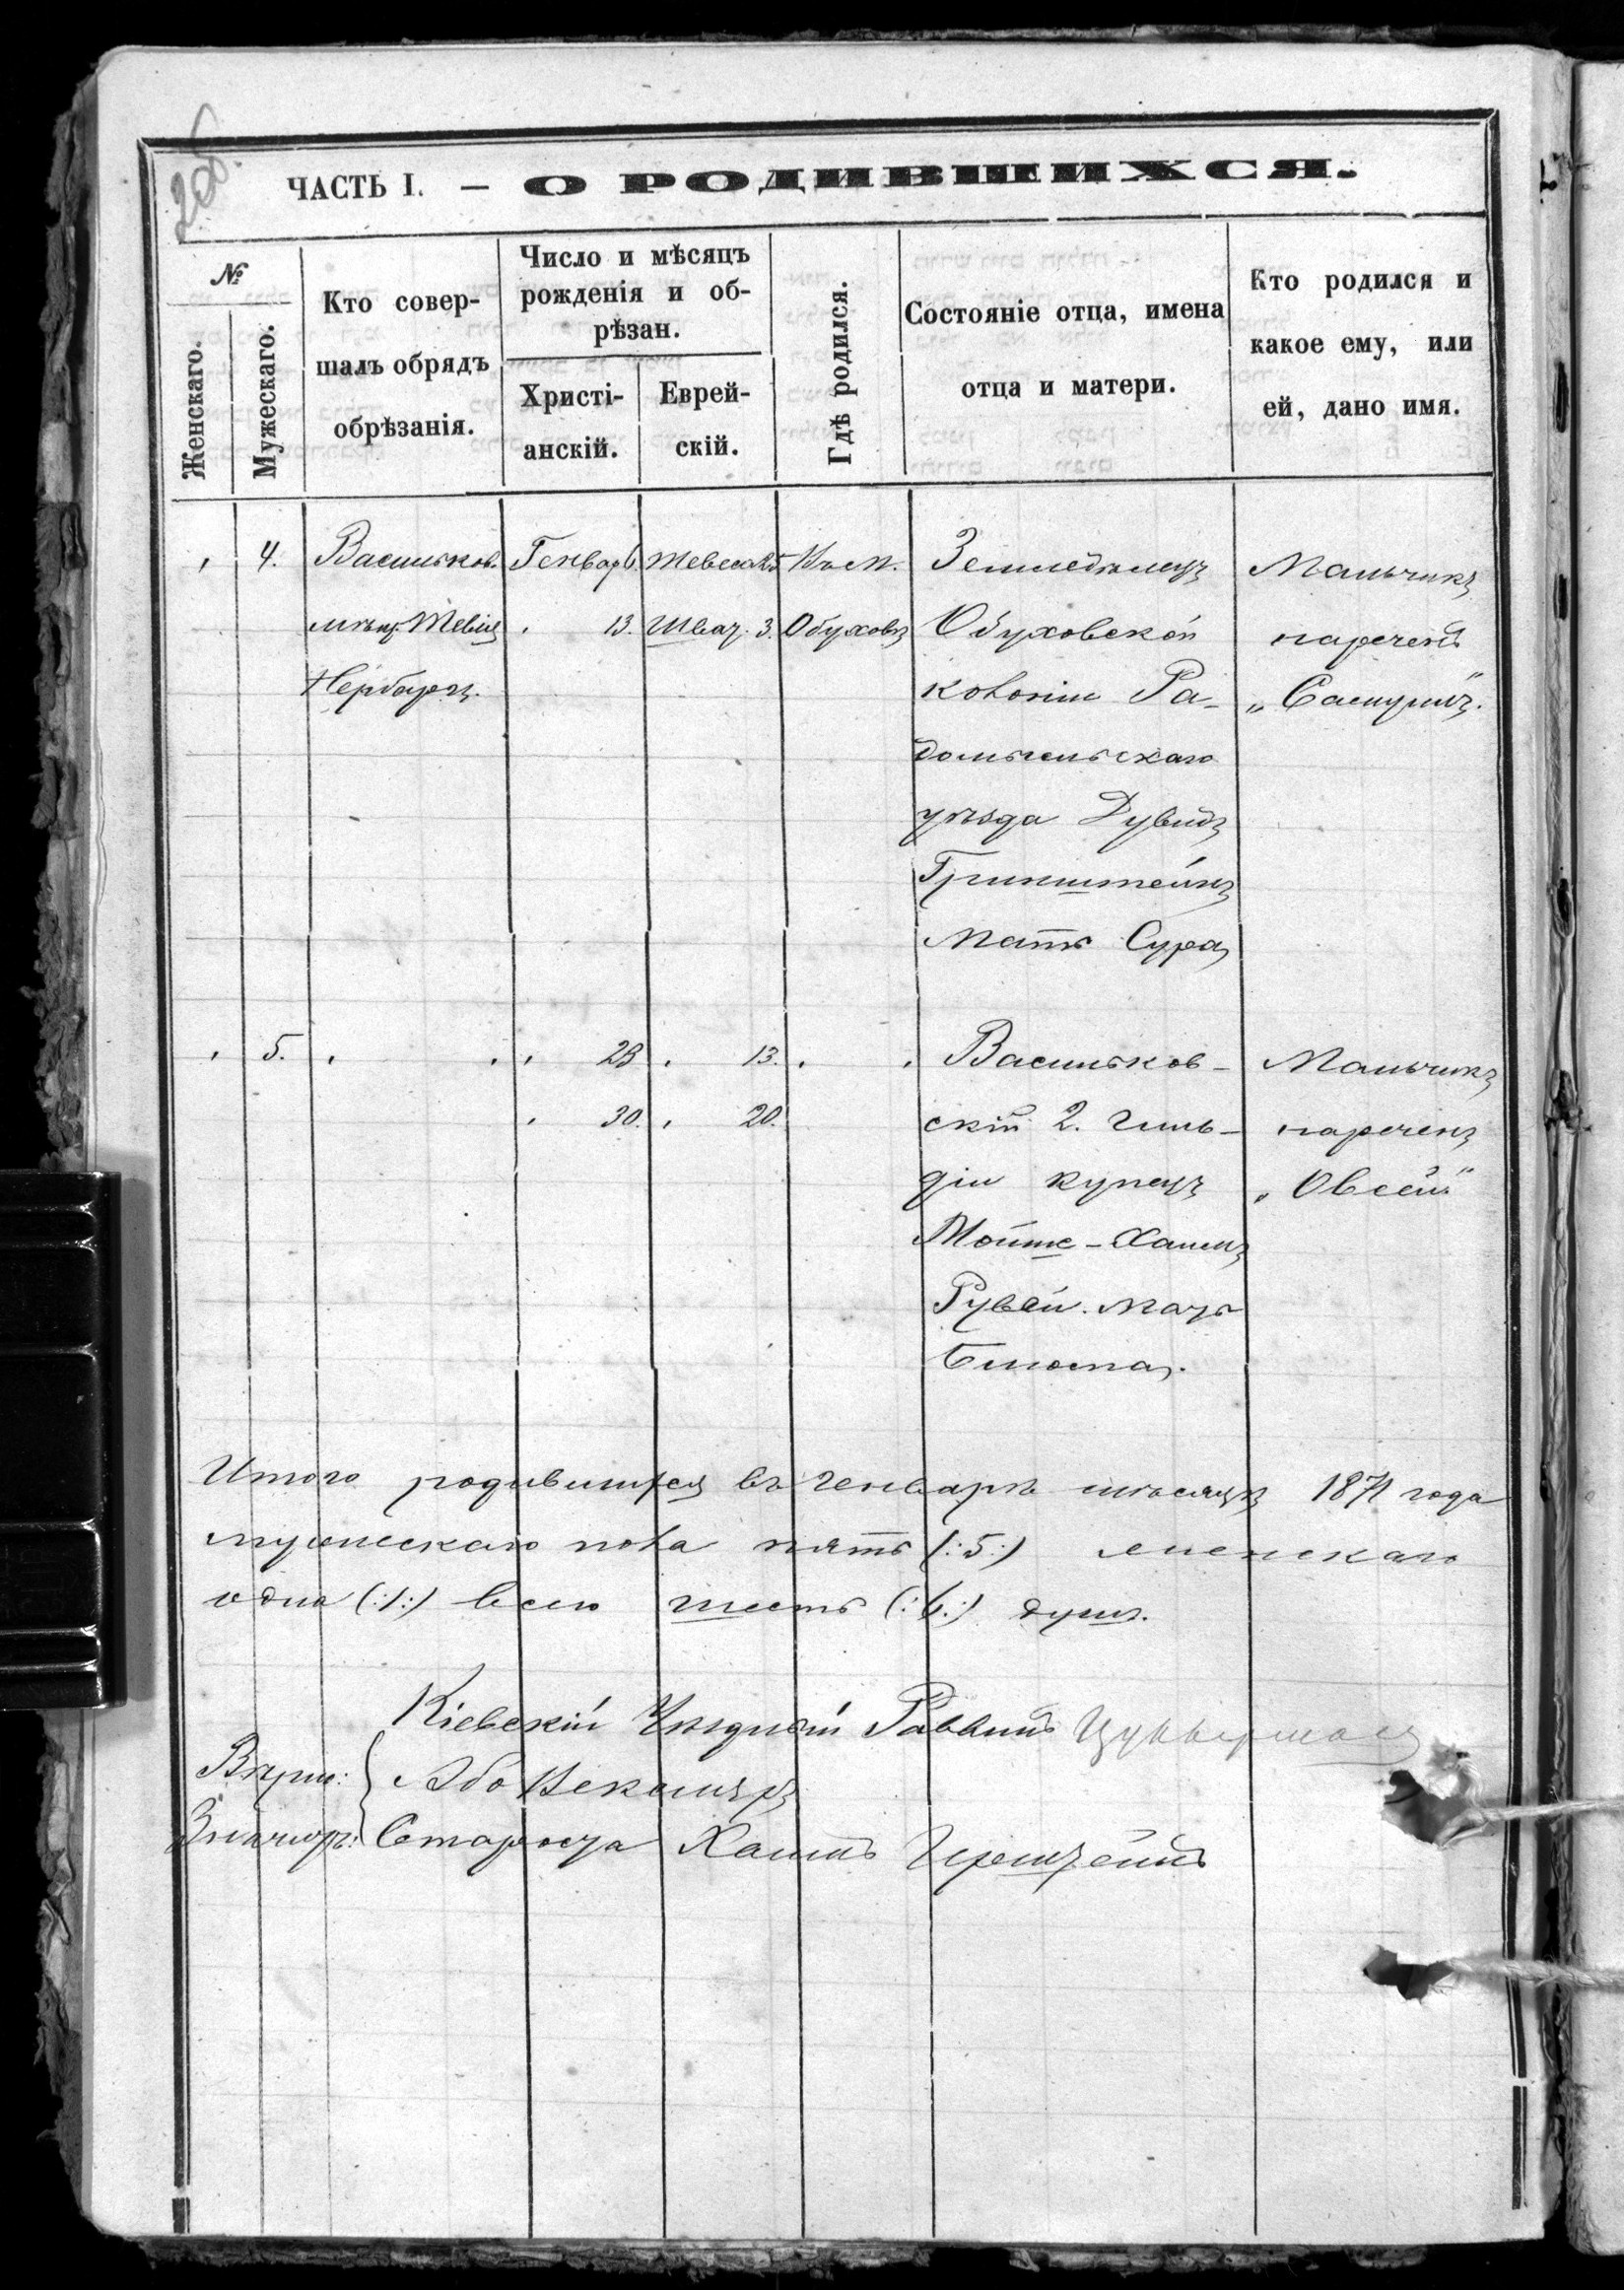 ЧАСТЬ I. — О РОДИВШИХСЯ.
№
Женскаго.
Мужескаго.
Кто совер-
шалъ обрядъ
обрѣзанія.
Число и мѣсяцъ
рожденія и об-
рѣзан.
Христі-
анскій.
Еврей-
скій.
Гдѣ родился.
Состояніе отца, имена
отца и матери.
Кто родился и
какое ему, или
ей, дано имя.
4.
Васильков.
мѣщ. Тевія
Генвар 6.
13.
Тевеса 25
Шват. 3.
Въ м.
Обуховъ
Земледѣлецъ
Обуховской
колоніи Ра-
домысльскаго
уѣзда Дувидъ
Гринштейнъ
Мать Сура
Мальчикъ
нареченъ
„Самуилъ".
5.
23
30.
13.
20.
Васильков-
скій 2. гиль-
діи купецъ
Мойше-Хаимъ
Рувей. мать
Блюма.
Мальчикъ
нареченъ
„Овсей"
Итого родившихся въ генварѣ мѣсяцѣ 1871 года
мужескаго пола пять (:5:) женскаго
одна (:1:) всего шесть (:6:) душъ.
Кіевскій Уѣздный Раввинъ Цуккерманъ
Староста Хаимъ